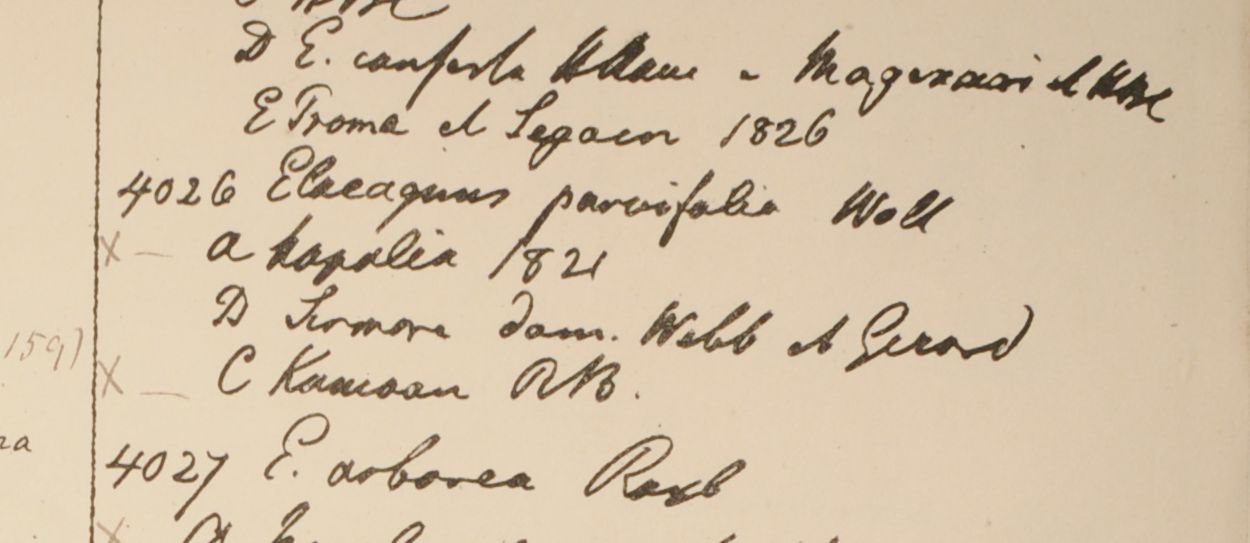 D E. conferta
E Prome et Segaen 1826
4026 Elaeagnus parvifolia Wall
X — a Napalia 1821
B Sirmore dom. Webb et Gerard
1591
X — C Kamoan RB.
ra
4027 E. arborea Roxb
X